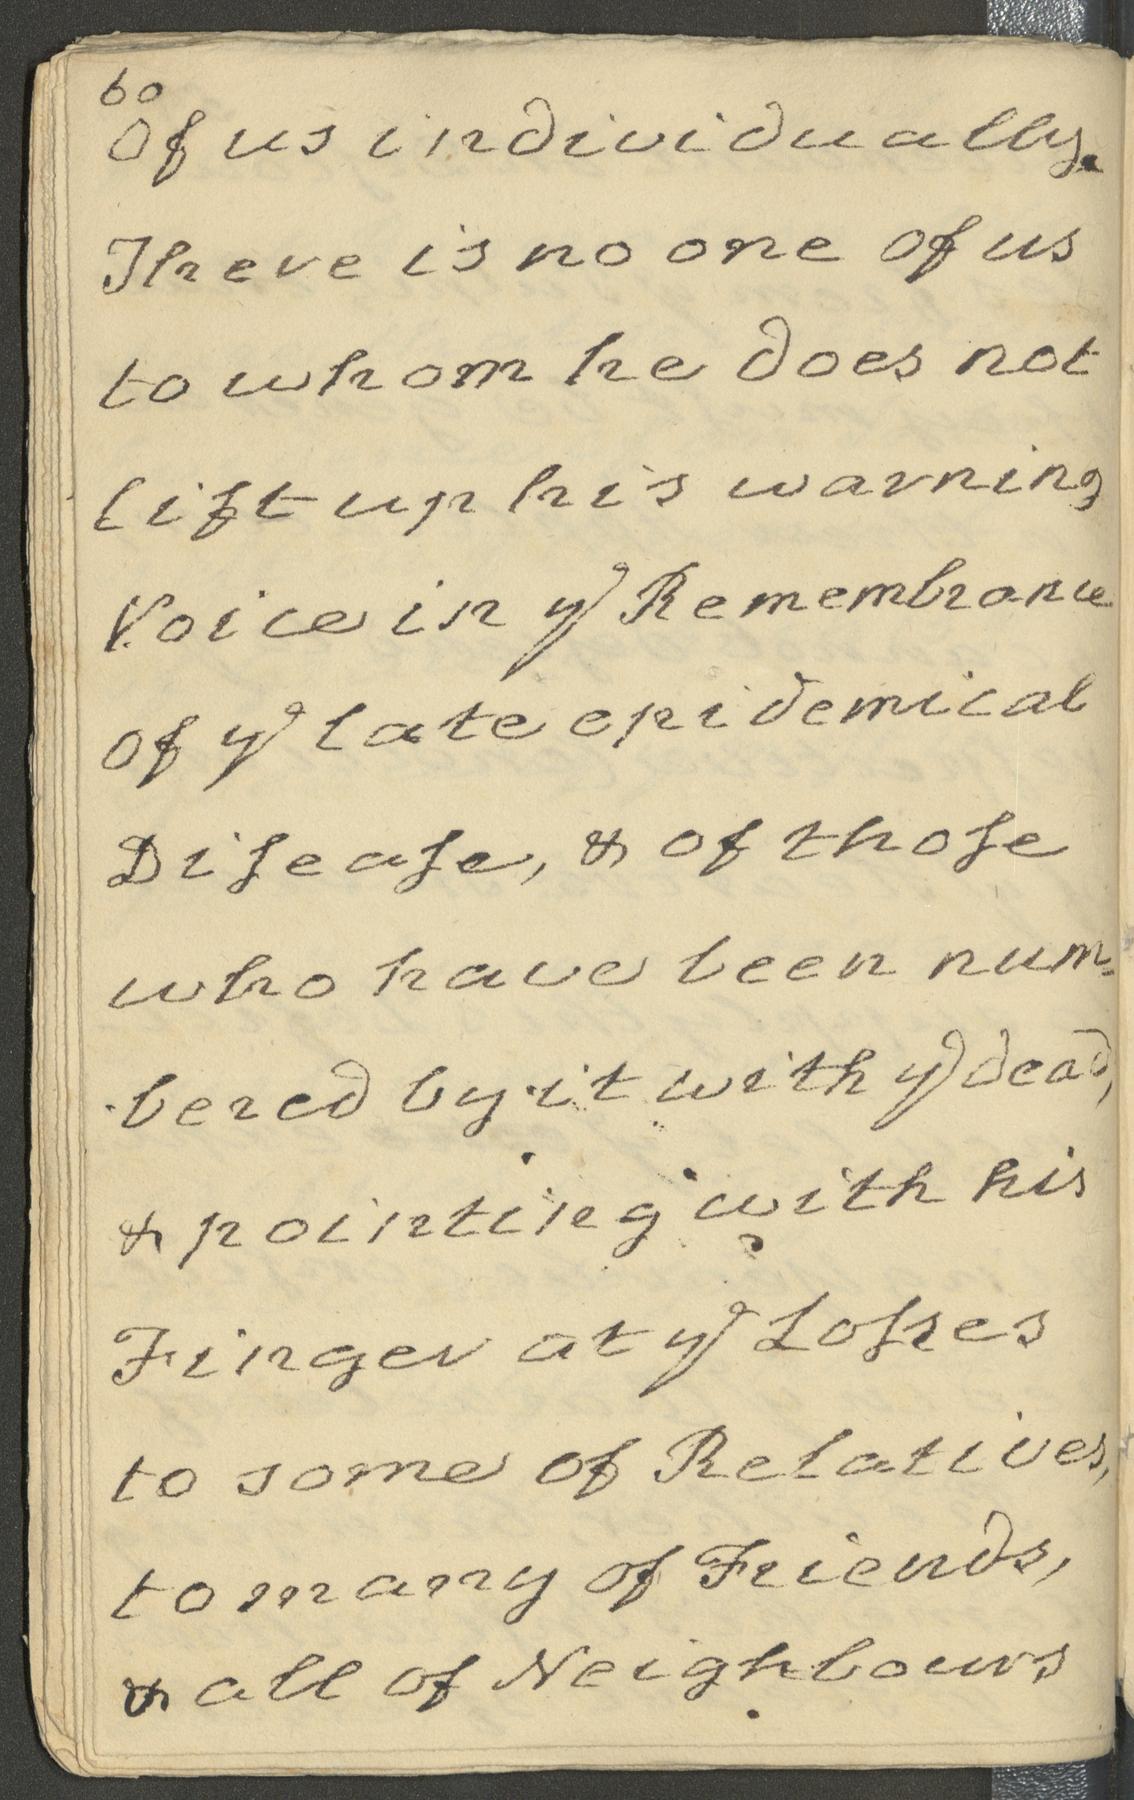 60
Of us individually.
There is no one of us
to whom he does not
lift up his warning
Voice in yͤ Remembrance
of yͤ late epidemical
Diſeaſe, & of thoſe
who have been num-
-bered by it with yͤ dead,
& pointing with his
Finger at yͤ Loſses
to some of Relatives,
to many of Friends,
& all of Neighbours